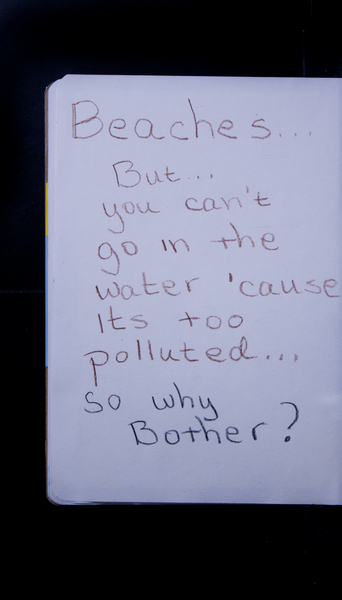 Beaches...
But...
you can't
go in the
water 'cause
Its too
polluted...
so why
Bother?